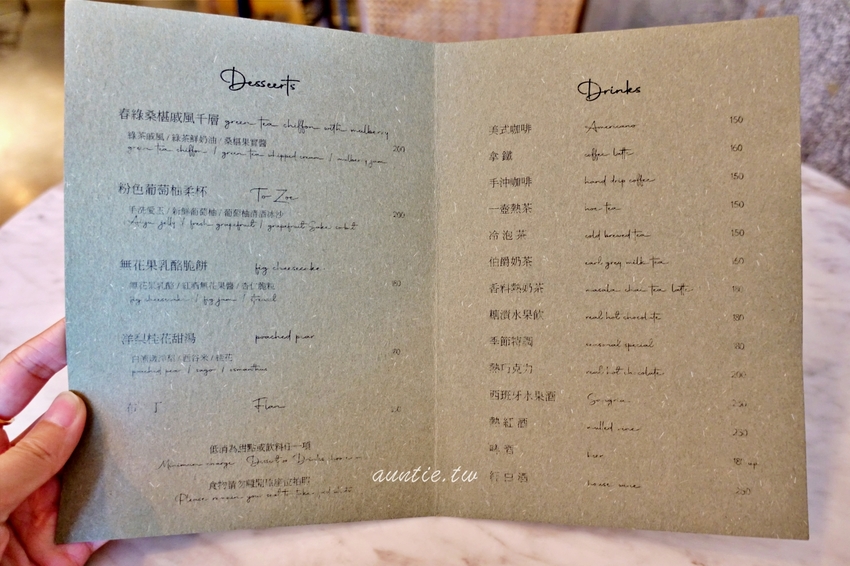 Desserts
春綠桑椹戚風千層 green tea chiffon with mulberry
綠茶戚風/綠茶鮮奶油/桑椹果實醬 200
green tea chiffon / green tea whipped cream / mulberry jam
粉色葡萄柚柔杯 To Zoe
手洗愛玉/新鮮葡萄柚/葡萄柚清酒冰沙 200
Aiyu jelly / fresh grapefruit / grapefruit Sake
無花果乳酪脆餅 fig cheesecake
180
fig cheesecake / fig jam /
洋梨桂花甜湯 poached pear
西谷米/桂花
poached pear / sago / osmanthus
Flan
低消為甜點或飲料任一項
Minimum charge
Drinks
美式咖啡 Americano 150
拿鐵 coffee latte 160
手沖咖啡 hand drip coffee 180
一壺熱茶 hot tea 150
冷泡茶 cold brewed tea 150
伯爵奶茶 earl grey milk tea 160
香料熱奶茶 masala chai tea latte 180
水果飲 real hot chocolate 180
季節特調 seasonal special
熱巧克力 real hot chocolate 200
西班牙水果酒 Sangria 250
熱紅酒 mulled wine 250
啤酒 beer up
紅白酒 house wine 250
auntie.tw